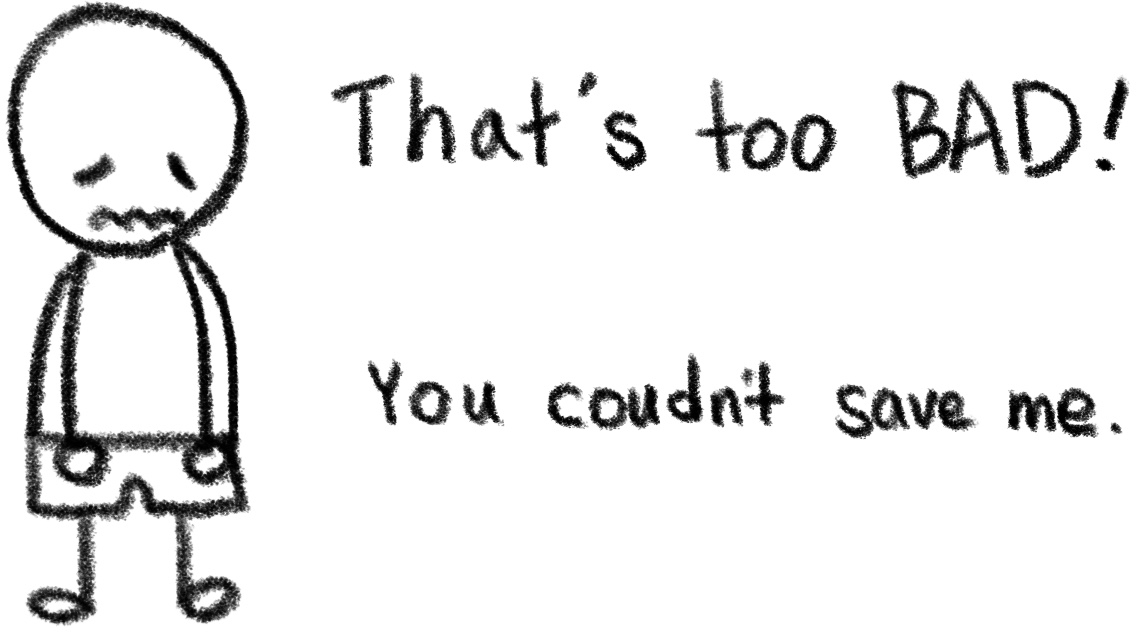 That's too BAD!
You coudn't save me.